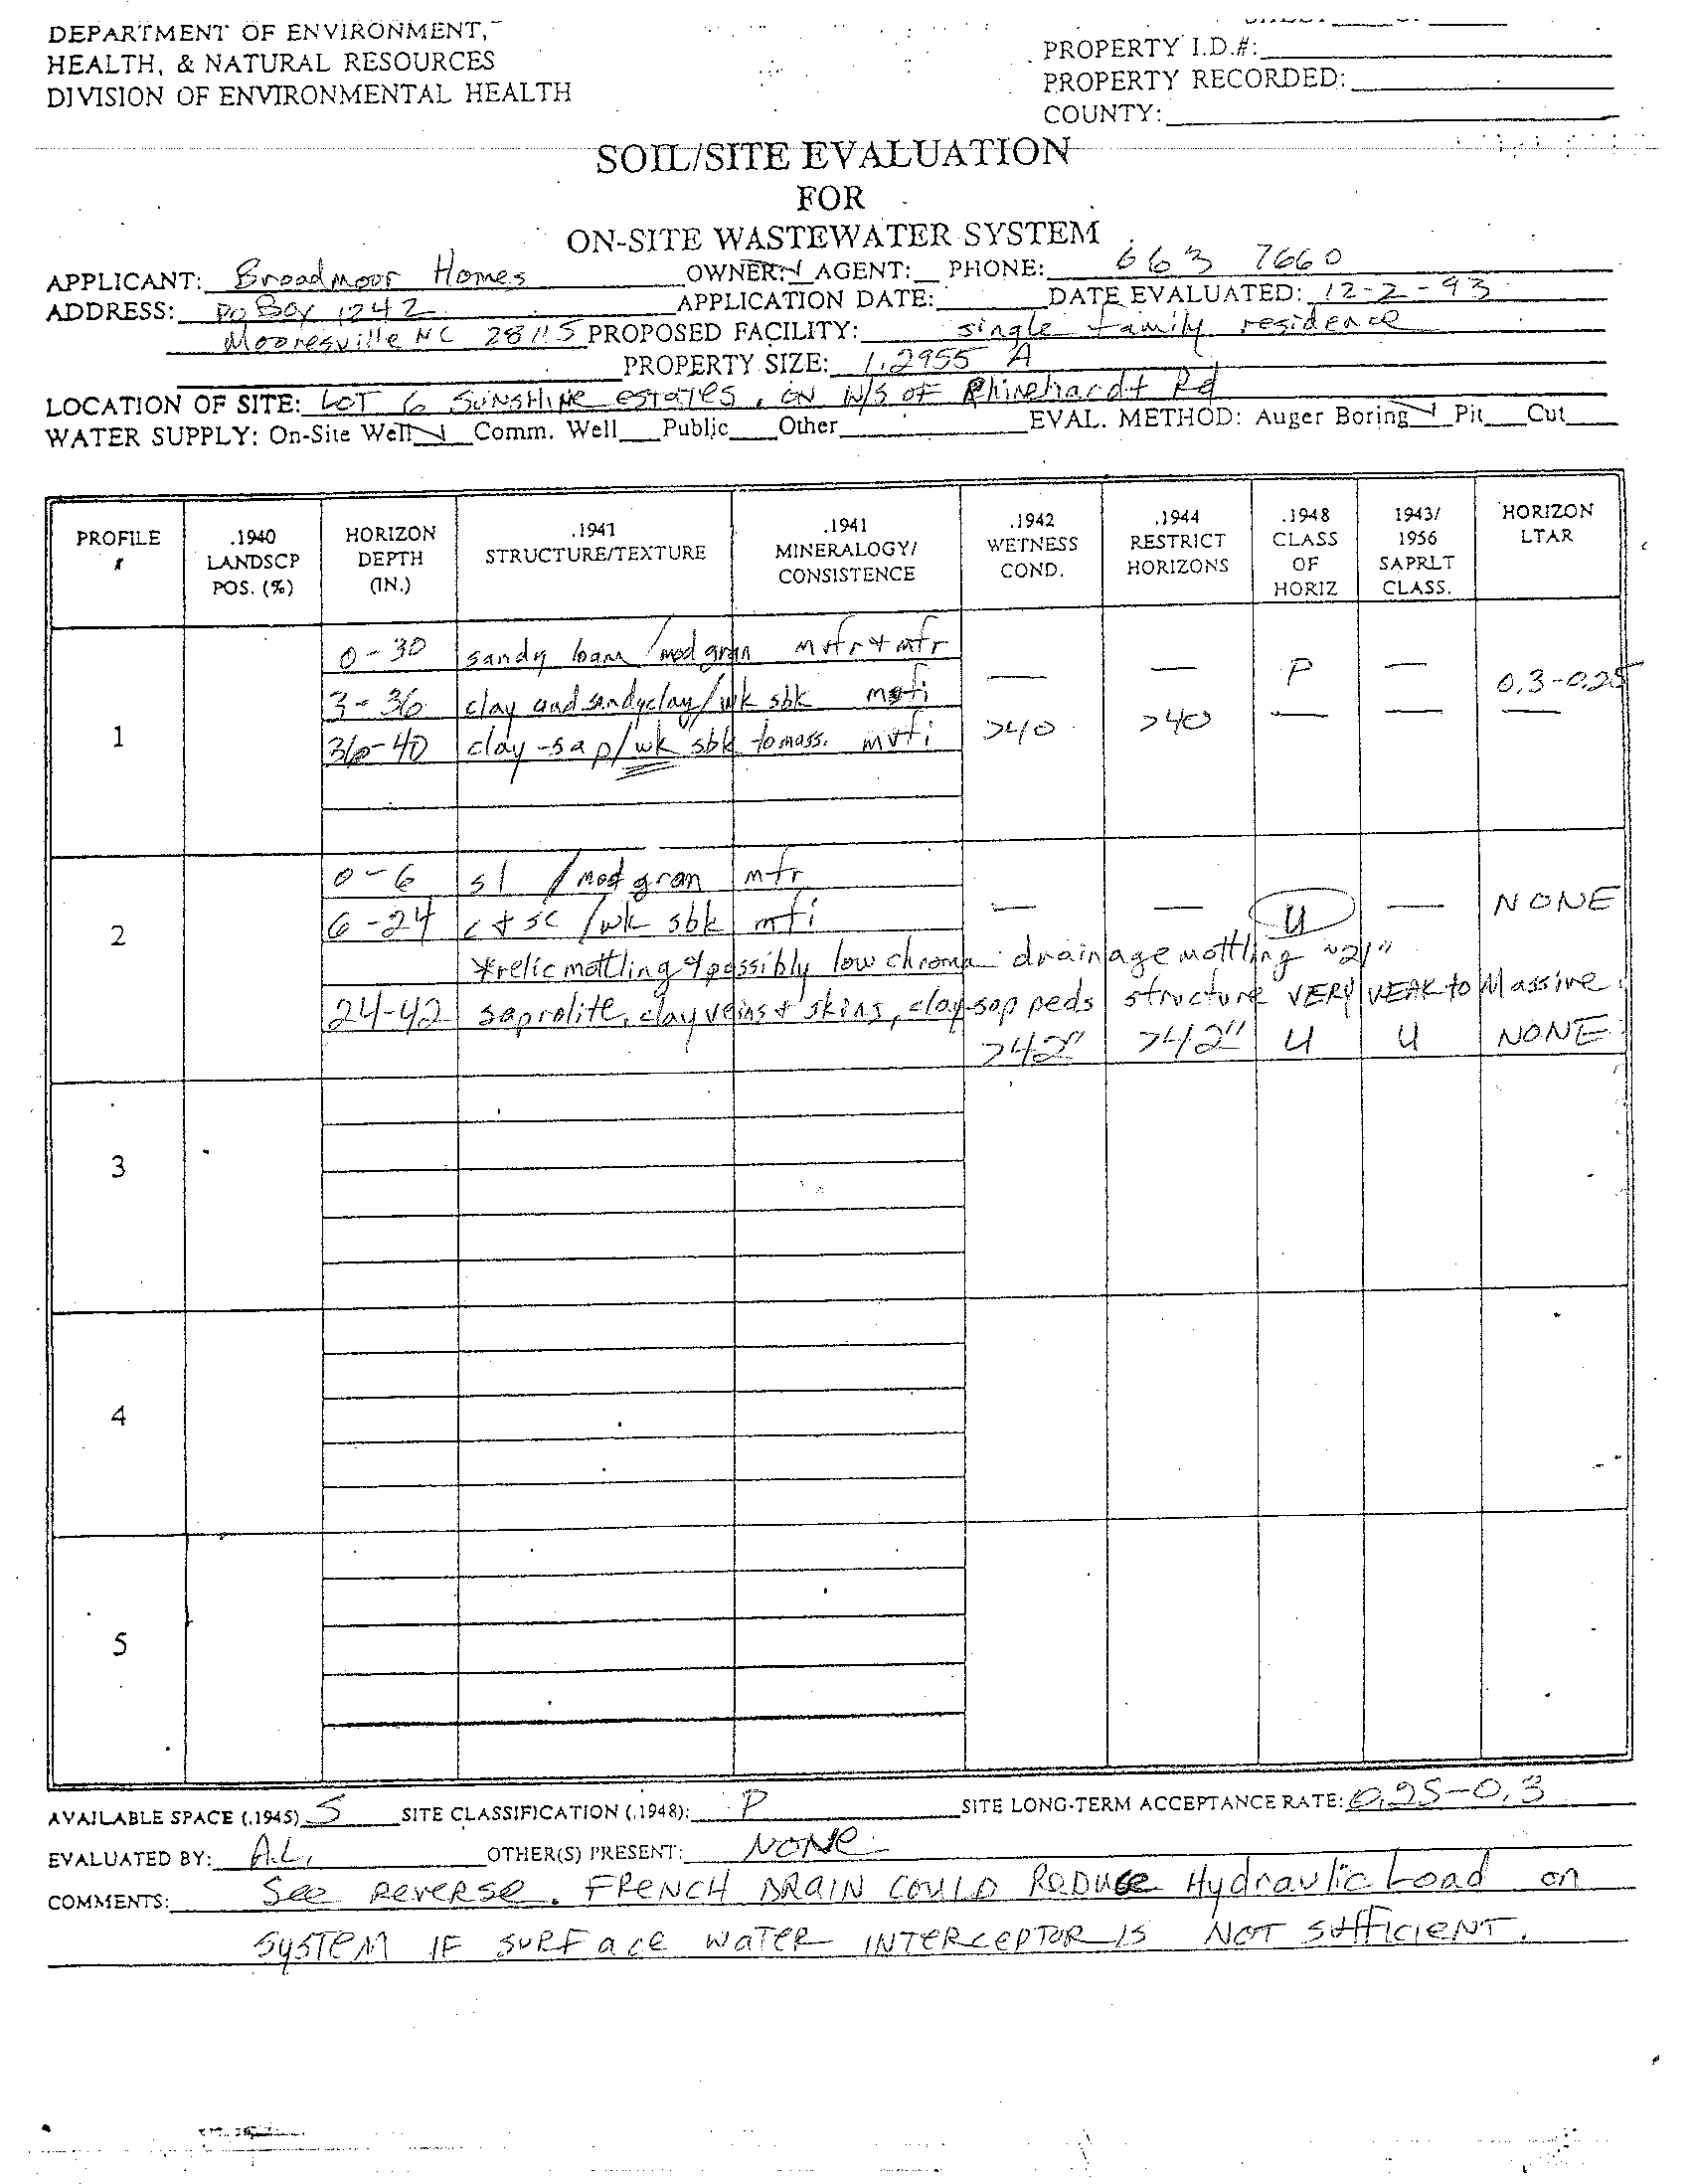 DEPARTMENT OF ENVIRONMENT,
HEALTH, & NATURAL RESOURCES
DIVISION OF ENVIRONMENTAL HEALTH
PROPERTY I.D.#:
PROPERTY RECORDED:
COUNTY:
SOIL/SITE EVALUATION
FOR
ON-SITE WASTEWATER SYSTEM
APPLICANT: Broadmoor Homes OWNER: AGENT: PHONE: 663 7660
ADDRESS: PO Box 1242 APPLICATION DATE: DATE EVALUATED: 12-2-93
Mooresville NC 28115 PROPOSED FACILITY: single family residence
PROPERTY SIZE: 1.2955 A
LOCATION OF SITE: LOT 6 SUNSHINE estates, ON N/S OF Rhinehardt Rd
WATER SUPPLY: On-Site Well Comm. Well Public Other EVAL. METHOD: Auger Boring Pit Cut
PROFILE # .1940 LANDSCP POS. (%) HORIZON DEPTH (IN.) .1941 STRUCTURE/TEXTURE .1941 MINERALOGY/ CONSISTENCE .1942 WETNESS COND. .1944 RESTRICT HORIZONS .1948 CLASS OF HORIZ 1943/ 1956 SAPRLT CLASS. HORIZON LTAR
1
0-30 sandy loam/mod gran mvfr & mfr — — P — 0.3-0.25
3-36 clay and sandy clay/wk sbk mfi
36-40 clay-sap/wk sbk to mass. mvfi >40 >40 — — —
2
0-6 sl /mod gran mfr
6-24 c & sc /wk sbk mfi — — U — NONE
*relic mottling & possibly low chroma drainage mottling ~21"
24-42 saprolite, clay veins & skins, clay-sap peds structure VERY WEAK to Massive
>42" >42" U U NONE
3
4
5
AVAILABLE SPACE (.1945) S SITE CLASSIFICATION (.1948): P SITE LONG-TERM ACCEPTANCE RATE: 0.25-0.3
EVALUATED BY: A.L. OTHER(S) PRESENT: NONE
COMMENTS: See Reverse. FRENCH DRAIN COULD REDUCE Hydraulic Load on
SYSTEM IF SURFACE WATER INTERCEPTOR IS NOT SUFFICIENT.